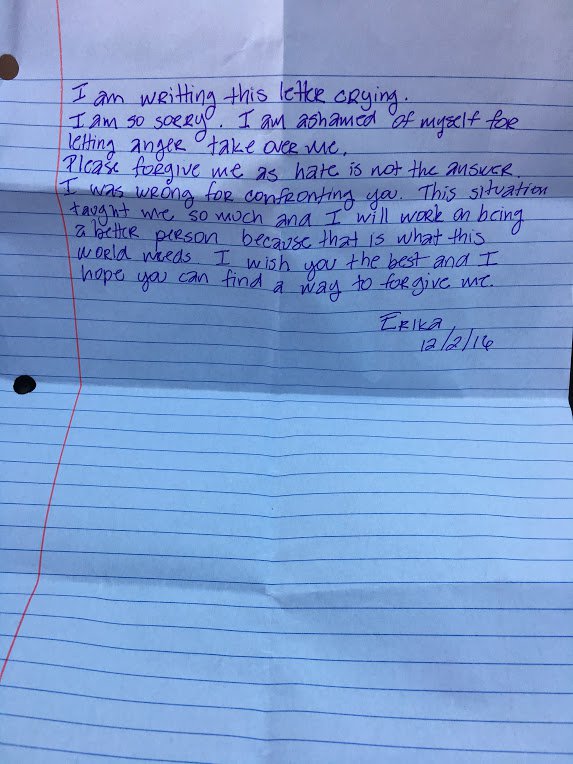 I am writting this letter crying.
I am so sorry. I am ashamed of myself for
letting anger take over me.
Please forgive me as hate is not the answer.
I was wrong for confronting you. This situation
taught me so much and I will work on being
a better person because that is what this
world needs. I wish you the best and I
hope you can find a way to forgive me.
Erika
12/2/16